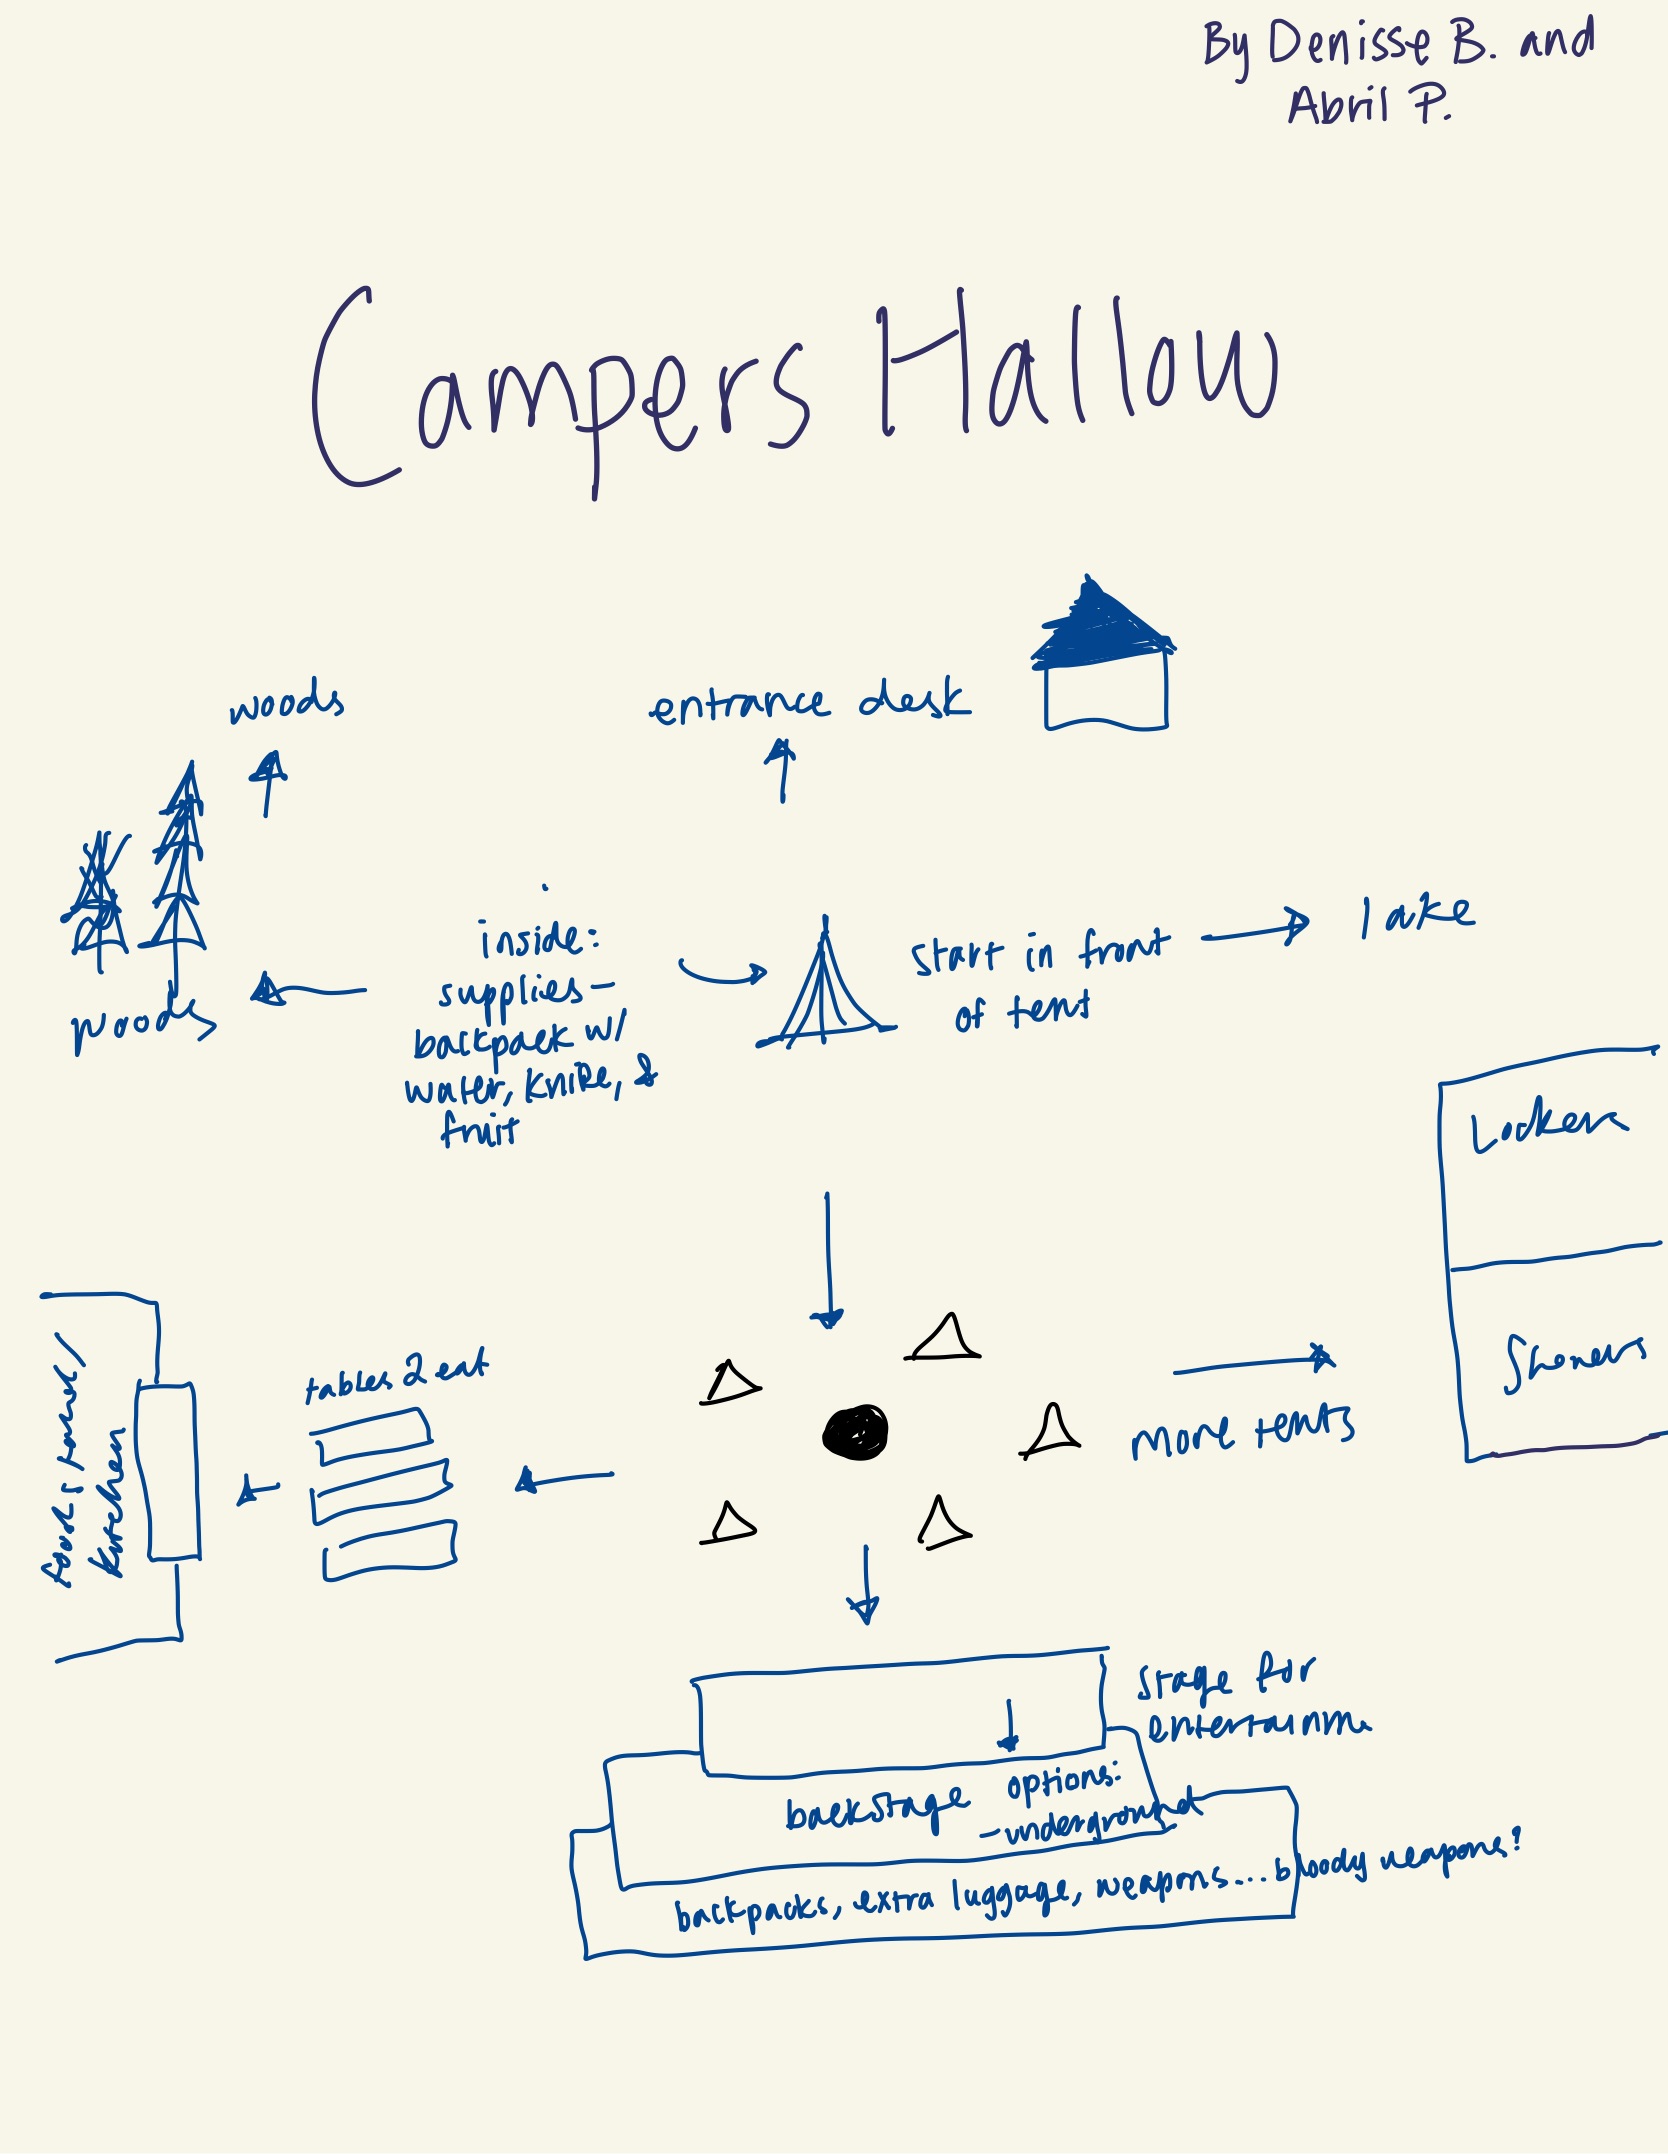 By Denisse B. and
Abril P.
Campers Hallow
woods
entrance desk
woods
inside:
supplies-
backpack w/
water, knife, &
fruit
start in front
of tent
lake
Lockers
Showers
food stand/
kitchen
tables 2 eat
more tents
stage for
entertainm.
backstage
options:
-underground
backpacks, extra luggage, weapons... bloody weapons?